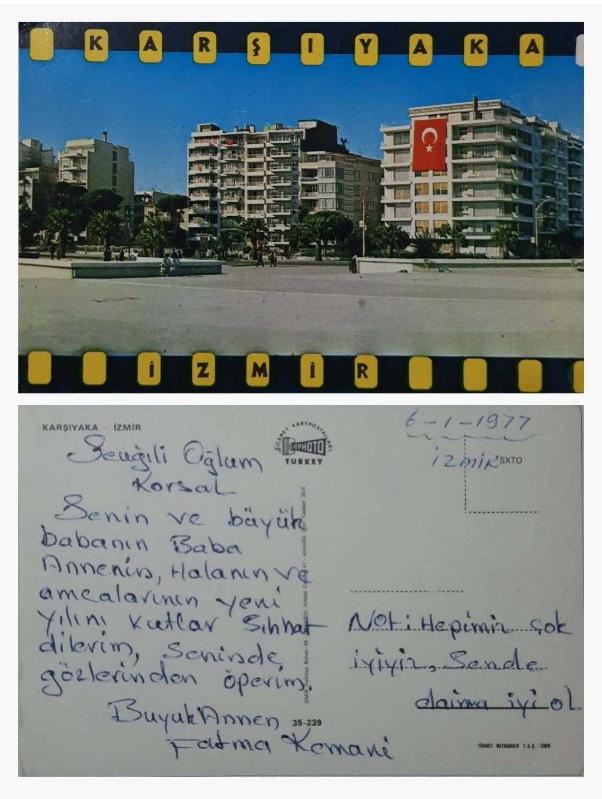 KARŞIYAKA
İZMİR
KARŞIYAKA - İZMİR
TİCARET KARTPOSTALLARI
PHOTO
TURKEY
6-1-1977
İZMİR
SXTO
Sevgili Oğlum
Korsal
Senin ve büyük
babanın Baba
Annenin, Halanın ve
amcalarının yeni
yılını kutlar Sıhhat
dilerim, Seninde
gözlerinden öperim.
BüyükAnnen
Fatma Kemani
35-239
Not: Hepimiz çok
iyiyiz, Sende
daima iyi ol
TİCARET MATBAACILIK T.A.Ş. - İZMİR